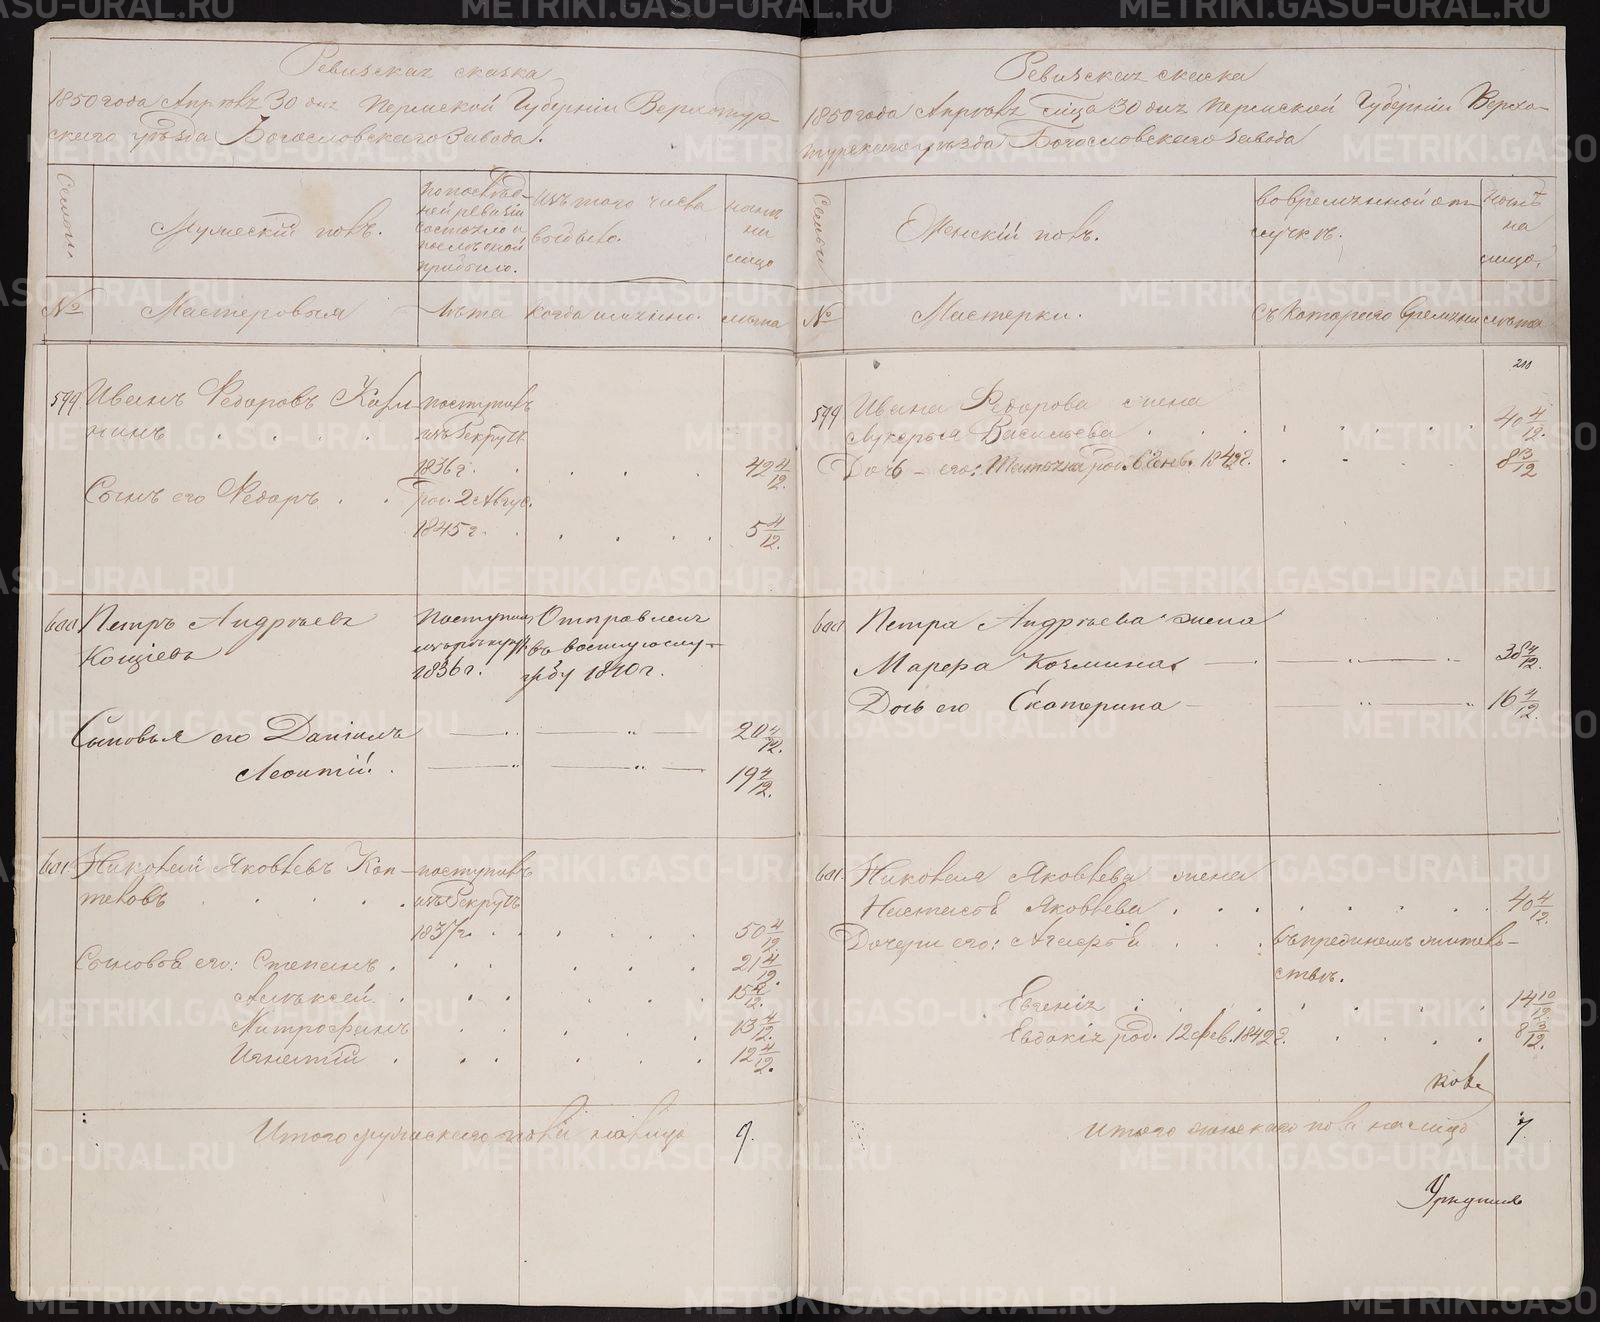 Ревизская сказка
1850 года Апреля 30 дня Пермской Губернiи Верхотур-
скаго уѣзда Богословскаго Завода.
Семьи
Мужескiй полъ.
По послѣд-
ней ревизiи
состояло и
послѣ оной
прибыло.
Изъ того числа
выбыло.
нынѣ
на
лицо
№
Мастеровыя
Лѣта
когда именно.
лѣта
599
Иванъ Федоровъ
нинъ
поступилъ
изъ рекрутъ
1836 г.
42 4/12.
Сынъ его Федоръ
род. 2 Авгус.
1845 г.
5 4/12.
600
Петръ Андреевъ
Кощiевъ
Поступилъ
изъ рекрутъ
1836 г.
Отправленъ
въ военную слу-
жбу 1840 г.
Сыновья его Данiилъ
20 4/12.
Леонтiй.
19 4/12.
601
Николай Яковлевъ Коп-
теловъ
поступилъ
изъ рекрутъ
1837 г.
50 4/12
Сыновья его: Степанъ
21 4/12.
Алексей
15 4/12.
Митрофанъ
13 4/12.
Игнатiй
12 4/12.
Итого мужескаго пола на лицо
9.
Ревизская сказка
1850 года Апреля мѣсяца 30 дня Пермской Губернiи Верхо-
турскаго уѣзда Богословскаго Завода
Семьи
Женскiй полъ.
во временной от
лучкѣ.
Нынѣ
на
лицо.
№
Мастерки.
съ котораго времени
лѣта
210
599
Ивана Федорова жена
Лукерья Васильева
40 4/12.
Дочь его: род. 1842 г.
8 3/12
600
Петра Андреева жена
Марфа Козмина
38 4/12.
Дочь его Екатерина
16 4/12.
601.
Николая Яковлева жена
Настасья Яковлева
40 4/12.
Дочери его: Агафья
въ прежнемъ житель-
ствѣ.
Евгенiя
14 10/12
Евдокiя род. 12 фев. 1842 г.
8 3/12.
Итого женскаго пола на лицо
7.